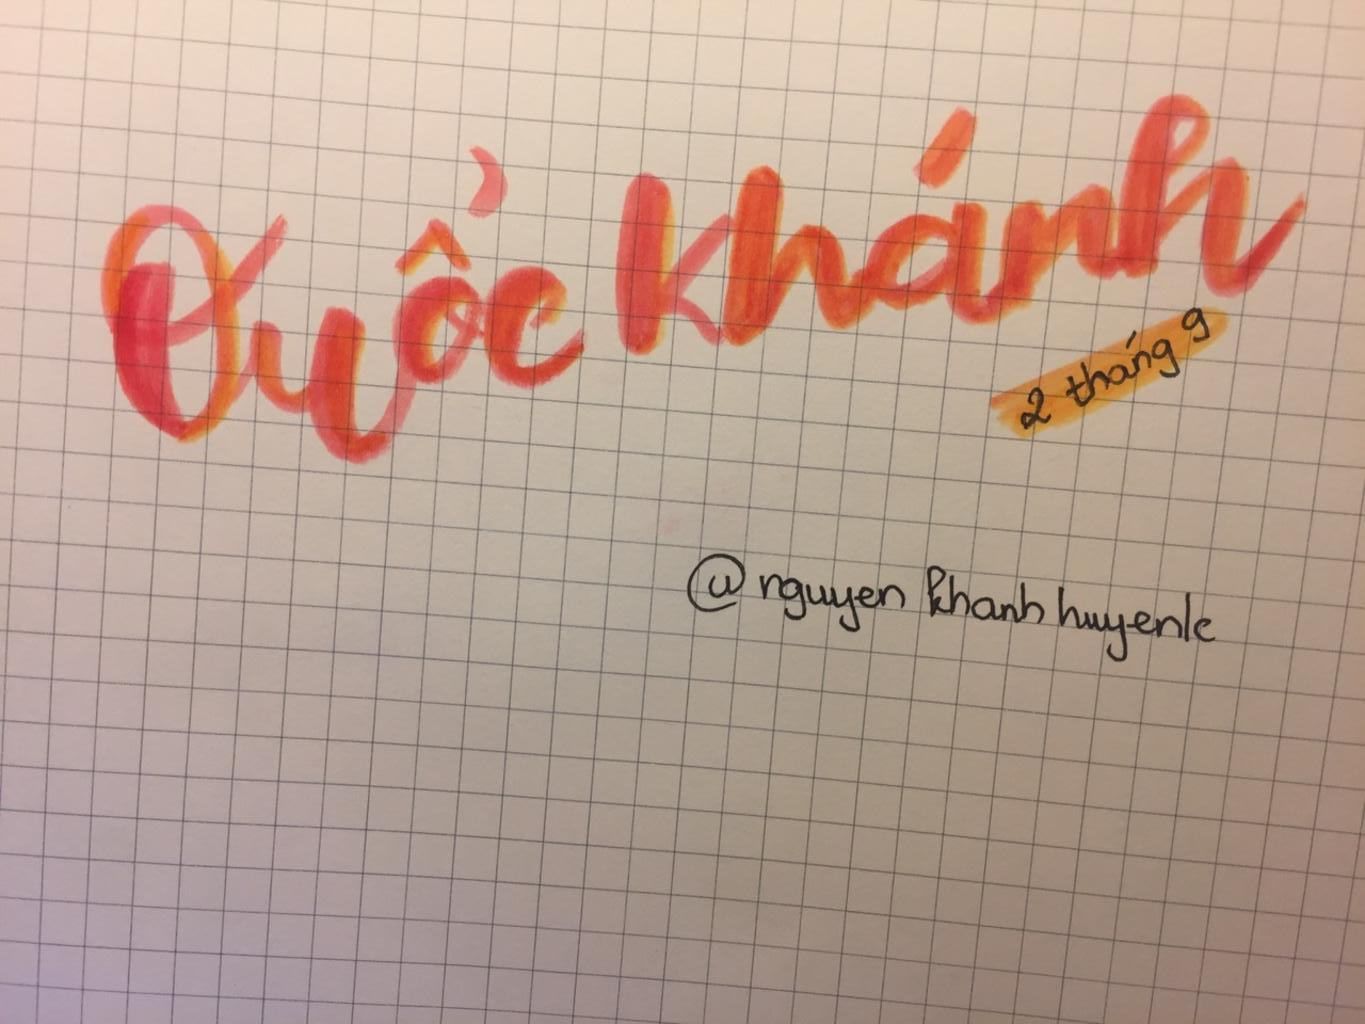 Quốc khánh
2 tháng 9
@nguyen khanh huyenlc